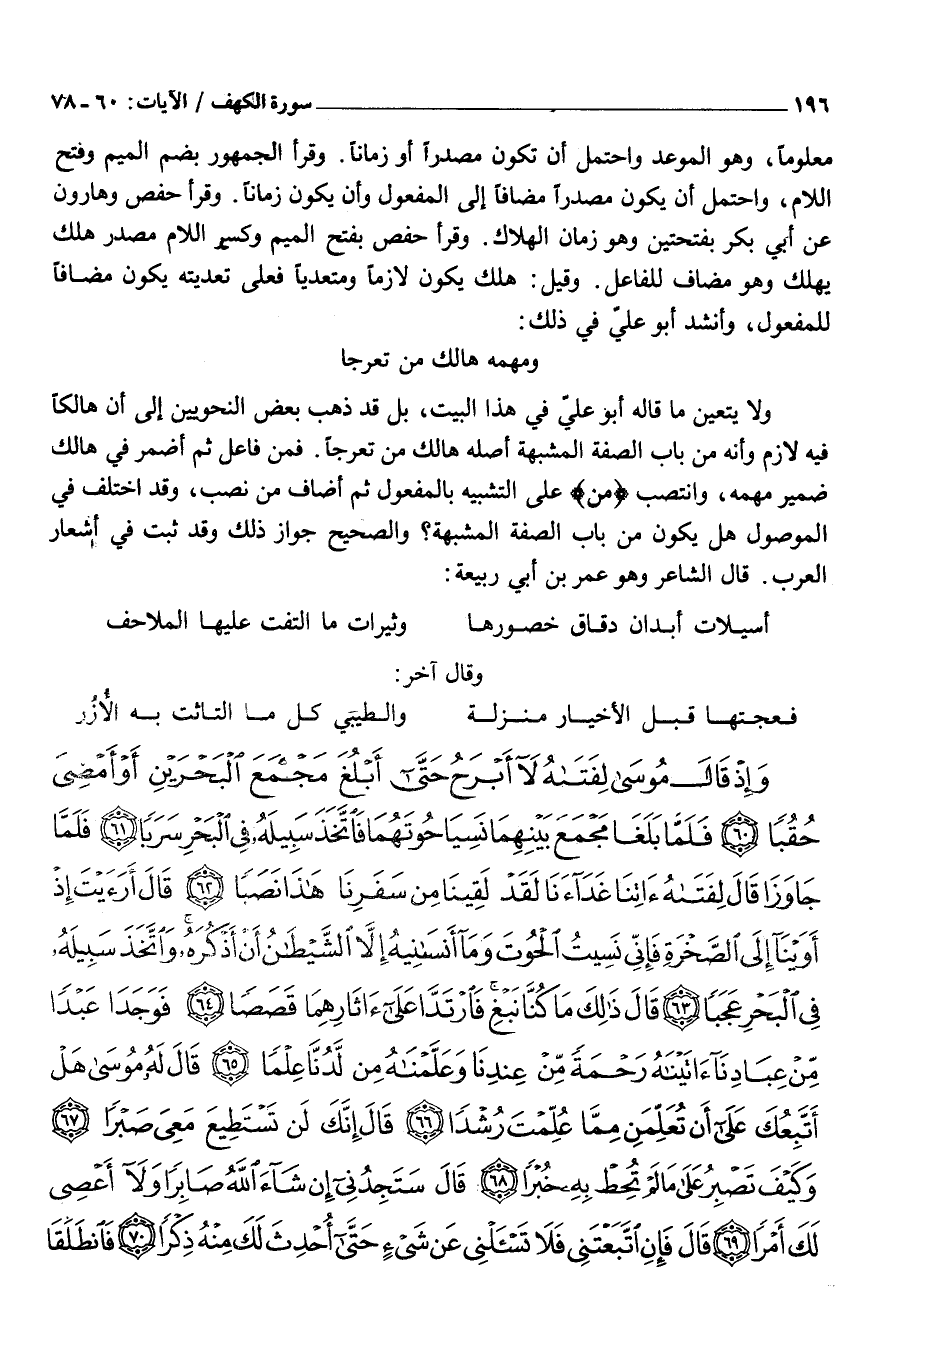 ١٩٦ ـــــــــ سورة الكهف / الآيات: ٦٠ ـ ٧٨
معلوماً، وهو الموعد واحتمل أن تكون مصدراً أو زماناً. وقرأ الجمهور بضم الميم وفتح
اللام، واحتمل أن يكون مصدراً مضافاً إلى المفعول وأن يكون زماناً. وقرأ حفص وهارون
عن أبي بكر بفتحتين وهو زمان الهلاك. وقرأ حفص بفتح الميم وكسر اللام مصدر هلك
يهلك وهو مضاف للفاعل. وقيل: هلك يكون لازماً ومتعدياً فعلى تعديته يكون مضافاً
للمفعول، وأنشد أبو عليّ في ذلك:
ومهمه هالك من تعرجا
ولا يتعين ما قاله أبو عليّ في هذا البيت، بل قد ذهب بعض النحويين إلى أن هالكاً
فيه لازم وأنه من باب الصفة المشبهة أصله هالك من تعرجاً. فمن فاعل ثم أضمر في هالك
ضمير مهمه، وانتصب ﴿من﴾ على التشبيه بالمفعول ثم أضاف من نصب، وقد اختلف في
الموصول هل يكون من باب الصفة المشبهة؟ والصحيح جواز ذلك وقد ثبت في أشعار
العرب. قال الشاعر وهو عمر بن أبي ربيعة:
أسيلات أبدان دقاق خصورها وثيرات ما التفت عليها الملاحف
وقال آخر:
فعجتها قبل الأخيار منزلة والطيبي كل ما التاثت به الأُزُر
وَإِذْ قَالَ مُوسَىٰ لِفَتَىٰهُ لَآ أَبْرَحُ حَتَّىٰٓ أَبْلُغَ مَجْمَعَ ٱلْبَحْرَيْنِ أَوْ أَمْضِىَ
حُقُبًا ٦٠ فَلَمَّا بَلَغَا مَجْمَعَ بَيْنِهِمَا نَسِيَا حُوتَهُمَا فَٱتَّخَذَ سَبِيلَهُۥ فِى ٱلْبَحْرِ سَرَبًا ٦١ فَلَمَّا
جَاوَزَا قَالَ لِفَتَىٰهُ ءَاتِنَا غَدَآءَنَا لَقَدْ لَقِينَا مِن سَفَرِنَا هَٰذَا نَصَبًا ٦٢ قَالَ أَرَءَيْتَ إِذْ
أَوَيْنَآ إِلَى ٱلصَّخْرَةِ فَإِنِّى نَسِيتُ ٱلْحُوتَ وَمَآ أَنسَىٰنِيهُ إِلَّا ٱلشَّيْطَٰنُ أَنْ أَذْكُرَهُۥ ۚ وَٱتَّخَذَ سَبِيلَهُۥ
فِى ٱلْبَحْرِ عَجَبًا ٦٣ قَالَ ذَٰلِكَ مَا كُنَّا نَبْغِ ۚ فَٱرْتَدَّا عَلَىٰٓ ءَاثَارِهِمَا قَصَصًا ٦٤ فَوَجَدَا عَبْدًا
مِّنْ عِبَادِنَآ ءَاتَيْنَٰهُ رَحْمَةً مِّنْ عِندِنَا وَعَلَّمْنَٰهُ مِن لَّدُنَّا عِلْمًا ٦٥ قَالَ لَهُۥ مُوسَىٰ هَلْ
أَتَّبِعُكَ عَلَىٰٓ أَن تُعَلِّمَنِ مِمَّا عُلِّمْتَ رُشْدًا ٦٦ قَالَ إِنَّكَ لَن تَسْتَطِيعَ مَعِىَ صَبْرًا ٦٧
وَكَيْفَ تَصْبِرُ عَلَىٰ مَا لَمْ تُحِطْ بِهِۦ خُبْرًا ٦٨ قَالَ سَتَجِدُنِىٓ إِن شَآءَ ٱللَّهُ صَابِرًا وَلَآ أَعْصِى
لَكَ أَمْرًا ٦٩ قَالَ فَإِنِ ٱتَّبَعْتَنِى فَلَا تَسْـَٔلْنِى عَن شَىْءٍ حَتَّىٰٓ أُحْدِثَ لَكَ مِنْهُ ذِكْرًا ٧٠ فَٱنطَلَقَا